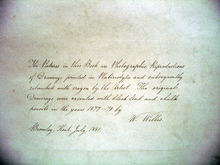 The Pictures in this Book are Photographic Reproductions
of Drawings printed in Platinotype and subsequently
retouched with crayon by the Artist. The original
Drawings were executed with black lead and chalk
pencils in the years 1877-78 by
W. Wallis
Bromley, Kent. July, 1881.